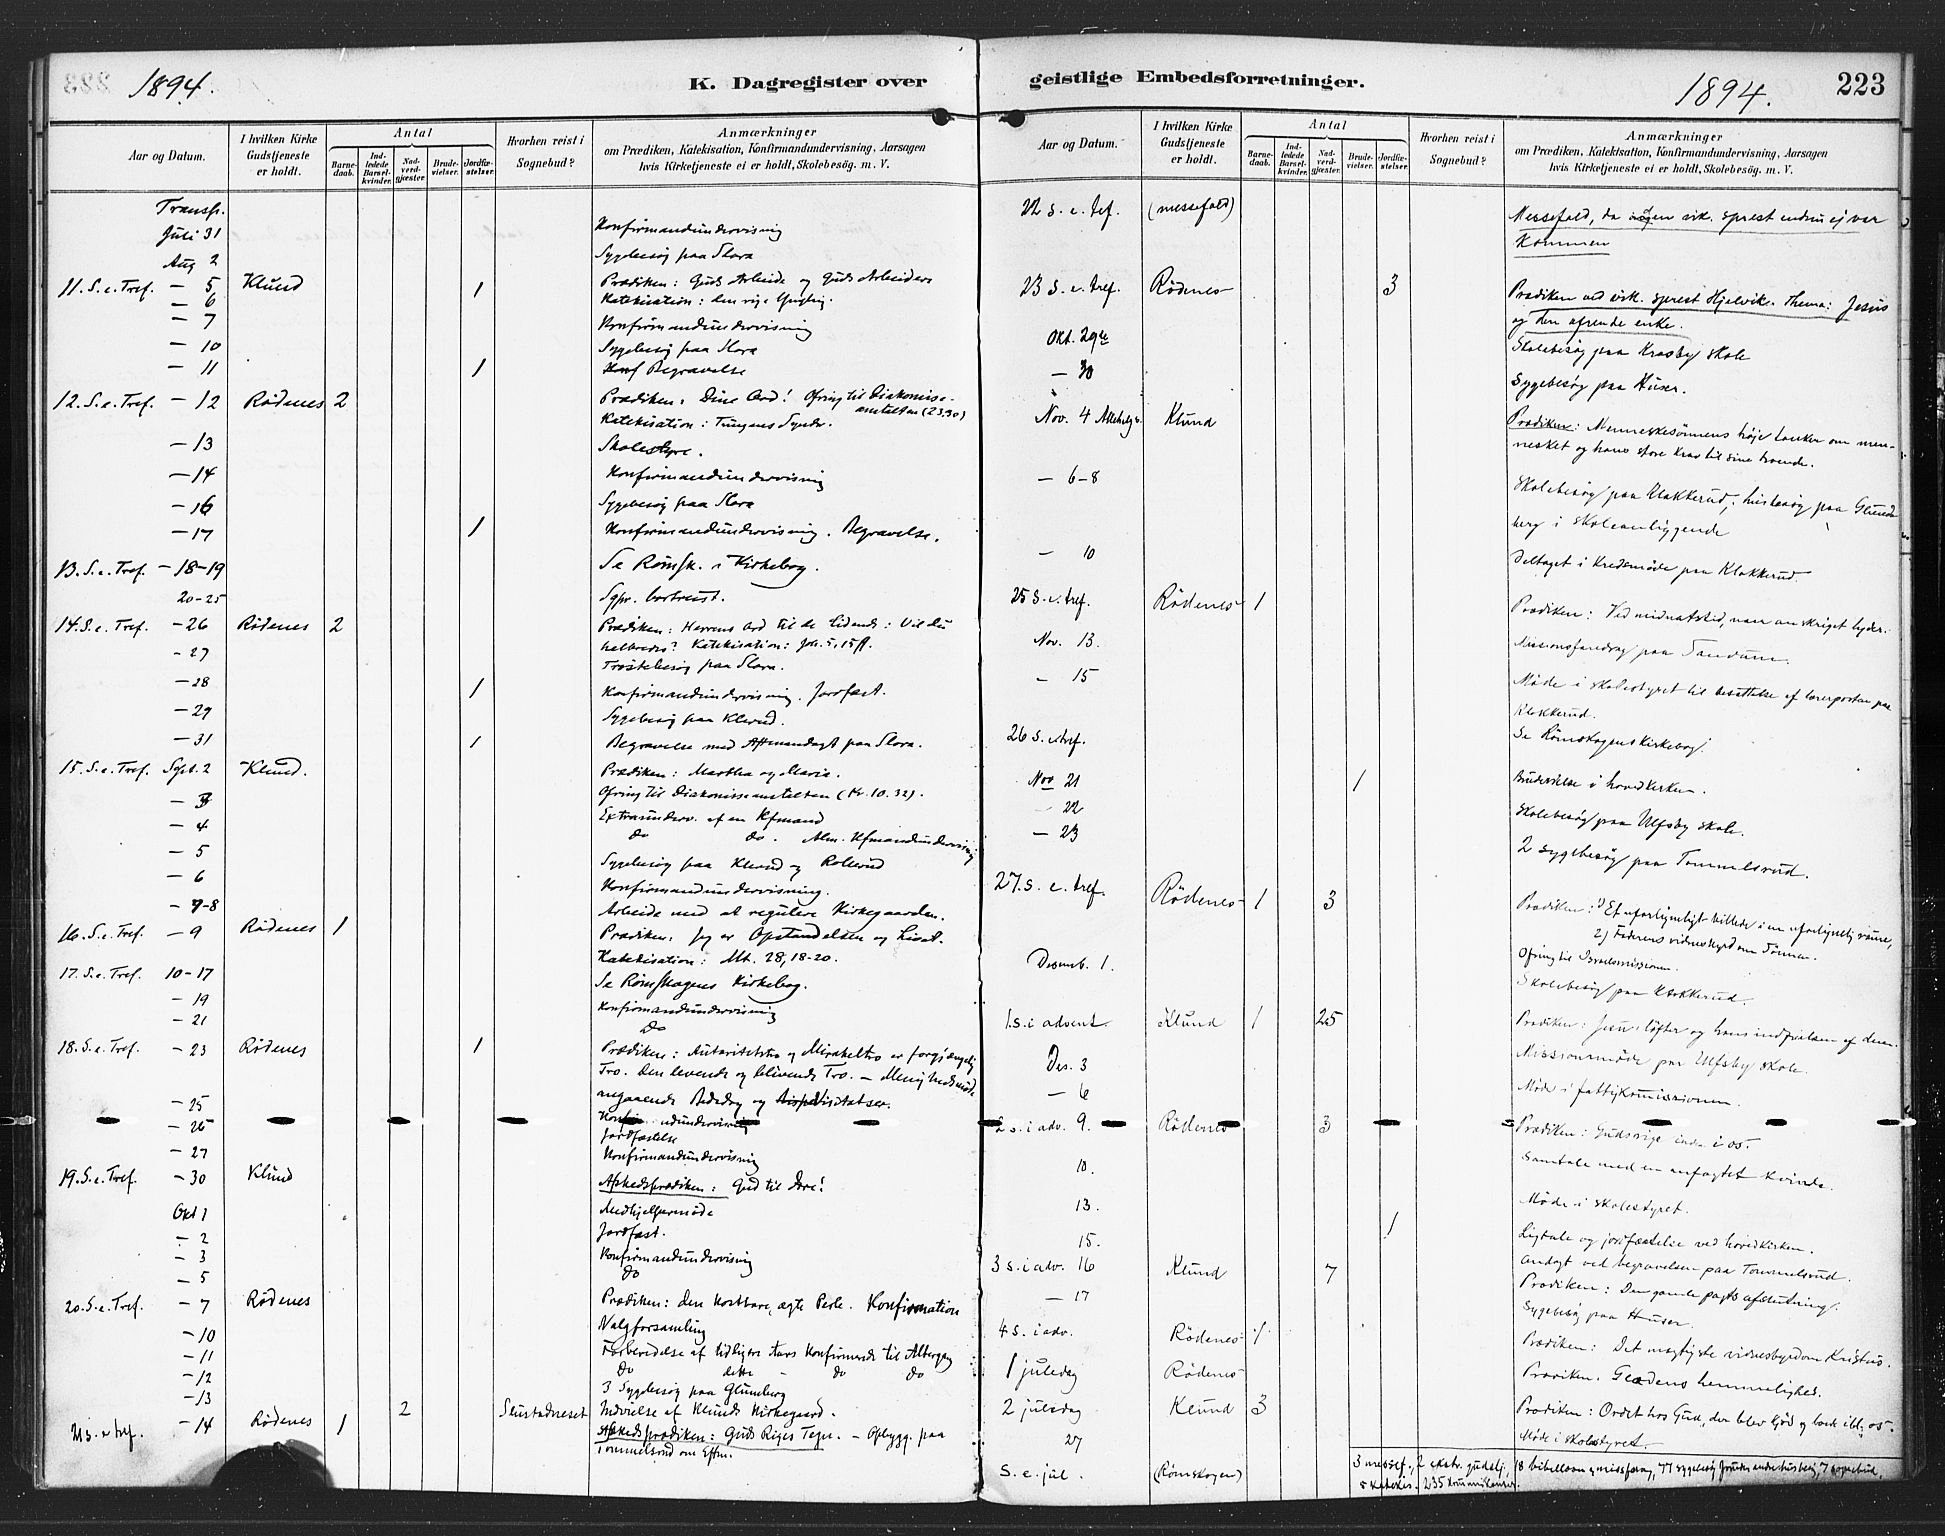 1894.
K. Dagregister over
geistlige Embedsforretninger.
1894.
223
Aar og Datum.
I hvilken Kirke Gudstjeneste er holdt.
Antal
Barnedaab.
Indledede Barselkvinder.
Nadverdgjæster
Brudevielser.
Jordfæstelser.
Hvorhen reist i Sognebud?
Anmærkninger
om Prædiken, Katekisation, Konfirmandundervisning, Aarsagen
hvis Kirketjeneste ei er holdt, Skolebesøg. m. V.
Transp.
Juli 31 Konfirmandundervisning
Aug 2 Sygebesøg paa Slora
11. S. e. Tref. — 5 Klund 1 Prædiken: Guds Arbeide og Guds Arbeidere
— 6 Katekisation: den rige Yngling.
— 7 Konfirmandundervisning
— 10 Sygebesøg paa Slora
— 11 1 Begravelse
12. S. e. Tref. — 12 Rødenes 2 Prædiken: Dine Ord! Ofring til Diakonisse-
anstalten (23,90)
Katekisation: Tungens Synder.
— 13 Skolestyre.
— 14 Konfirmandundervisning
— 16 Sygebesøg paa Slora
— 17 1 Konfirmandundervisning. Begravelse.
13. S. e. Tref. — 18-19 Se Rømsk. Kirkebog.
20-25 Sgpr. bortreist.
14. S. e. Tref. — 26 Rødenes 2 Prædiken: Herrens Ord til de Lidende: Vil du
helbredes? Katekisation: Joh. 5, 15 ff.
- 27 Trøstebesøg paa Slora.
— 28 1 Konfirmandundervisning. Jordfæst.
— 29 Sygebesøg paa Klerud.
— 31 1 Begravelse med paa Slora.
15. S. e. Tref. Sept. 2 Klund. Prædiken: Martha og Maria.
Ofring til Diakonisseanstalten (Kr. 10.32).
— 3 Extraunderv. af en Kfmand
— 4 do do. Alm. Kfmandundervisning
— 5 Sygebesøg paa Klerud og Rollerud
— 6 Konfirmandundervisning.
— 7-8 Arbeide med at regulere Kirkegaarden.
16. S. e. Tref. — 9 Rødenes 1 Prædiken: Jeg er Opstandelsen og Livet.
Katekisation: Mt. 28, 18-20.
17. S. e. Tref. 10-17 Se Rømskogens Kirkebog.
— 19 Konfirmandundervisning
— 21 Do
18. S. e. Tref. — 23 Rødenes 1 Prædiken: Autoritetstro og Mirakeltro er forgjængelig
Tro. Den levende og blivende Tro. — Menighedsmøde
angaaende Bededag og Visitatser.
— 25
— 26 Jordfæstelse
— 27 Konfirmandundervisning
19. S. e. Tref. — 30 Klund Afskedsprædiken: Gud til Ære!
Okt 1 Medhjelpermøde
— 2 Jordfæst.
— 3 Konfirmandundervisning
— 5 do
20. S. e. Tref. — 7 Rødenes Prædiken: Den kostbare, ægte Perle. Konfirmation
— 10 Valgforsamling
— 11 Forberedelse af tidligere Aars Konfirmerede til Altergang
— 12 Do dette - do do
— 13 3 Sygebesøg paa Glumberg
2 Slustadneset Indvielse af Klunds Kirkegaard.
21 s. e. tref. — 14 Rødenes 1 Afskedsprædiken: Guds Riges Tegn. — Opbygg. paa
Tommelsrud om Eftm.
Aar og Datum.
I hvilken Kirke Gudstjeneste er holdt.
Antal
Barnedaab.
Indledede Barselkvinder.
Nadverdgjæster.
Brudevielser.
Jordfæstelser.
Hvorhen reist i Sognebud?
Anmærkninger
om Prædiken, Katekisation, Konfirmandundervisning, Aarsagen
hvis Kirketjeneste ei er holdt, Skolebesøg. m. V.
22 s. e. tref. (messefald) Messefald, da vik. sprest endnu ej var
kommen
23 s. e. tref. Rødenes 3 Prædiken ved vik. sprest Hjelvik. Thema: Jesus
og den ofrende enke.
Okt. 29de Skolebesøg paa Krosby skole
— 30 Sygebesøg paa Huser.
Nov. 4 Allehelg. Klund Prædiken: Menneskesønnens høje tanker om men-
nesket og hans store krav til sine troende.
— 6-8 Skolebesøg paa Klokkerud; husbesøg paa
berg i skoleanliggende
— 10 Deltaget i Kredsmøde paa Klokkerud.
25 s. e. tref. Rødenes 1 Prædiken: Ved midnatstid, naar anskriget lyder.
Nov. 13. Missionsforedrag paa Tandum.
— 15 Møde i skolestyret til besættelse af lærerposten paa
Klokkerud.
26 s. e. tref. Se Rømskogens kirkebog.
Nov 21 1 Brudevielse i hovedkirken.
— 22 Skolebesøg paa Ulfsby skole.
— 23 2 sygebesøg paa Tommelsrud.
27. s. e. tref. Rødenes 1 3 Prædiken: 1) Et uforlignligt billede i en uforlignelig ramme,
2) Faderens vidnesbyrd om Sønnen.
Ofring til Israelsmissionen.
Desemb. 1. Skolebesøg paa Klokkerud.
1. s. i advent. Klund 1 25 Prædiken: Jesu løfter og hans indfrielsen af dem.
Des. 3 Missionsmøde paa Ulfsby skole.
— 6 Møde i fattigkomissionen.
2 s. i adv. 9. Rødenes 3 Prædiken: Gudsrige inden i os.
10. Samtale med en anfægtet kvinde.
13. Møde i skolestyret.
15. 1 Ligtale og jordfæstelse ved hovedkirken.
Andagt ved begravelsen paa Tommelsrud.
3 s. i adv. 16 Klund 7 Prædiken: Den gamle pagts afslutning.
— 17 Sygebesøg paa Huser.
4 s. i adv. Rødenes 1 Prædiken: Det mægtigste vidnesbyrd om Kristus.
1 juledag Rødenes Prædiken. Glædens hemmelighed.
2 juledag Klund 3 Prædiken: Ordet hos Gud, der blev kjød og boede iblandt os.
27 Møde i skolestyret.
S. e. jul. (Rømskogen) 3 messef., 2 ekstr. gudstj., 18 bibellæsn. og missforedrag, 77 sygebesøg, 7 sognebud,
5 katekis. 235 kommunikanter.